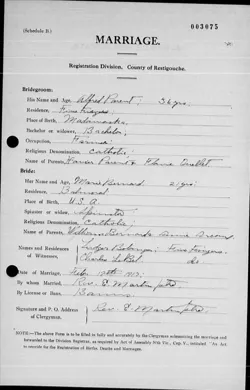 003075
(Schedule B.)
MARRIAGE.
Registration Division, County of Restigouche.
Bridegroom:
His Name and Age, Alfred Parent; 36 yrs.
Residence, Five Fingers
Place of Birth, Matamaska
Bachelor or widower, Bachelor
Occupation, Farmer
Religious Denomination, Catholic
Name of Parents, Parent &
Bride:
Her Name and Age, Marie Bernard 21 yrs.
Residence, Balmoral
Place of Birth, U.S.A.
Spinster or widow, Spinster
Religious Denomination, Catholic
Name of Parents, William Bernard &
Names and Residences of Witnesses, Five Fingers
Charles do
Date of Marriage, Feb. 1917.
By whom Married, Rev. D. Martin, ptre
By License or Bans, Banns
Signature and P. O. Address of Clergyman, Rev. D. Martin, ptre
NOTE.—The above Form is to be filled in fully and accurately by the Clergyman solemnizing the marriage and
forwarded to the Division Registrar, as required by Act of Assembly
to provide for the Registration of Births, Deaths and Marriages.